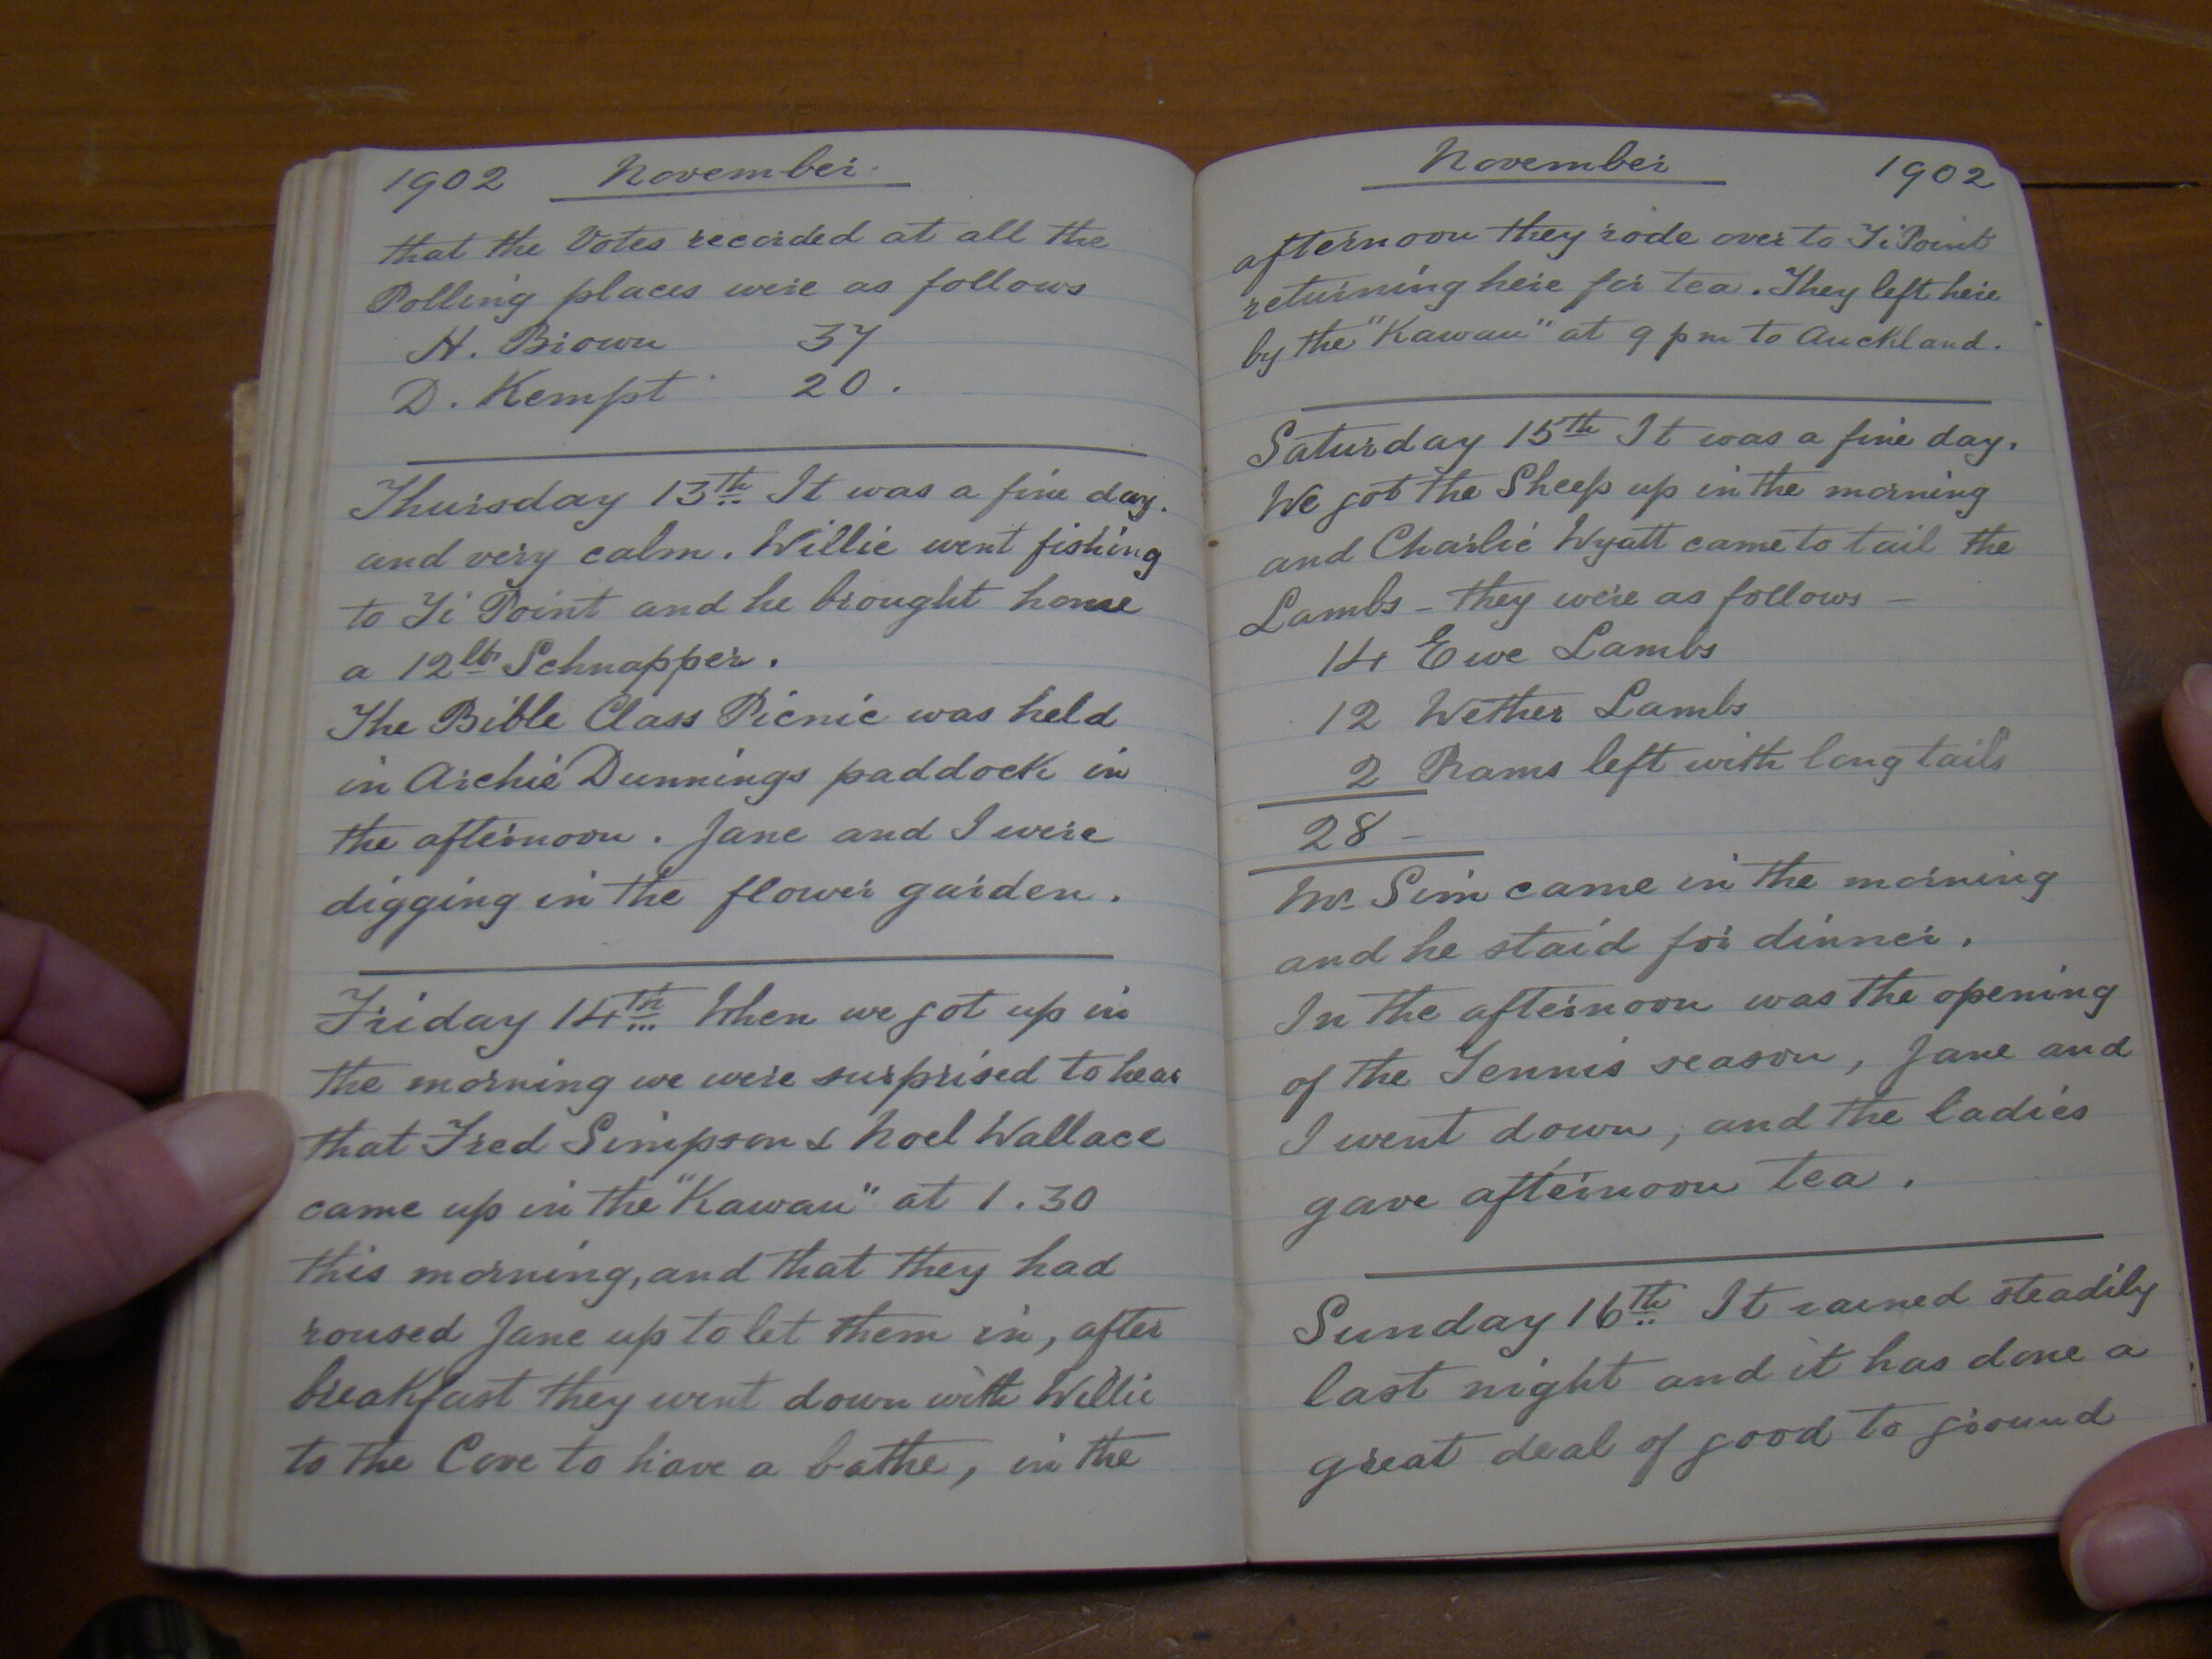 1902 November.
that the Votes recorded at all the
Polling places were as follows
H. Brown 37
D. Kempt 20.
Thursday 13th It was a fine day.
and very calm. Willie went fishing
to Ti Point and he brought home
a 12lb Schnapper.
The Bible Class Picnic was held
in Archie Dunnings paddock in
the afternoon. Jane and I were
digging in the flower garden.
Friday 14th When we got up in
the morning we were surprised to hear
that Fred Simpson & Noel Wallace
came up in the "Kawau" at 1.30
this morning, and that they had
roused Jane up to let them in, after
breakfast they went down with Willie
to the Cove to have a bathe, in the
November 1902
afternoon they rode over to Ti Point
returning here for tea. They left here
by the "Kawau" at 9 pm to Auckland.
Saturday 15th It was a fine day.
We got the Sheep up in the morning
and Charlie Wyatt came to tail the
Lambs - they were as follows -
14 Ewe Lambs
12 Wether Lambs
2 Rams left with long tails
28 -
Mr Sim came in the morning
and he staid for dinner.
In the afternoon was the opening
of the Tennis season, Jane and
I went down, and the ladies
gave afternoon tea.
Sunday 16th It rained steadily
last night and it has done a
great deal of good to ground